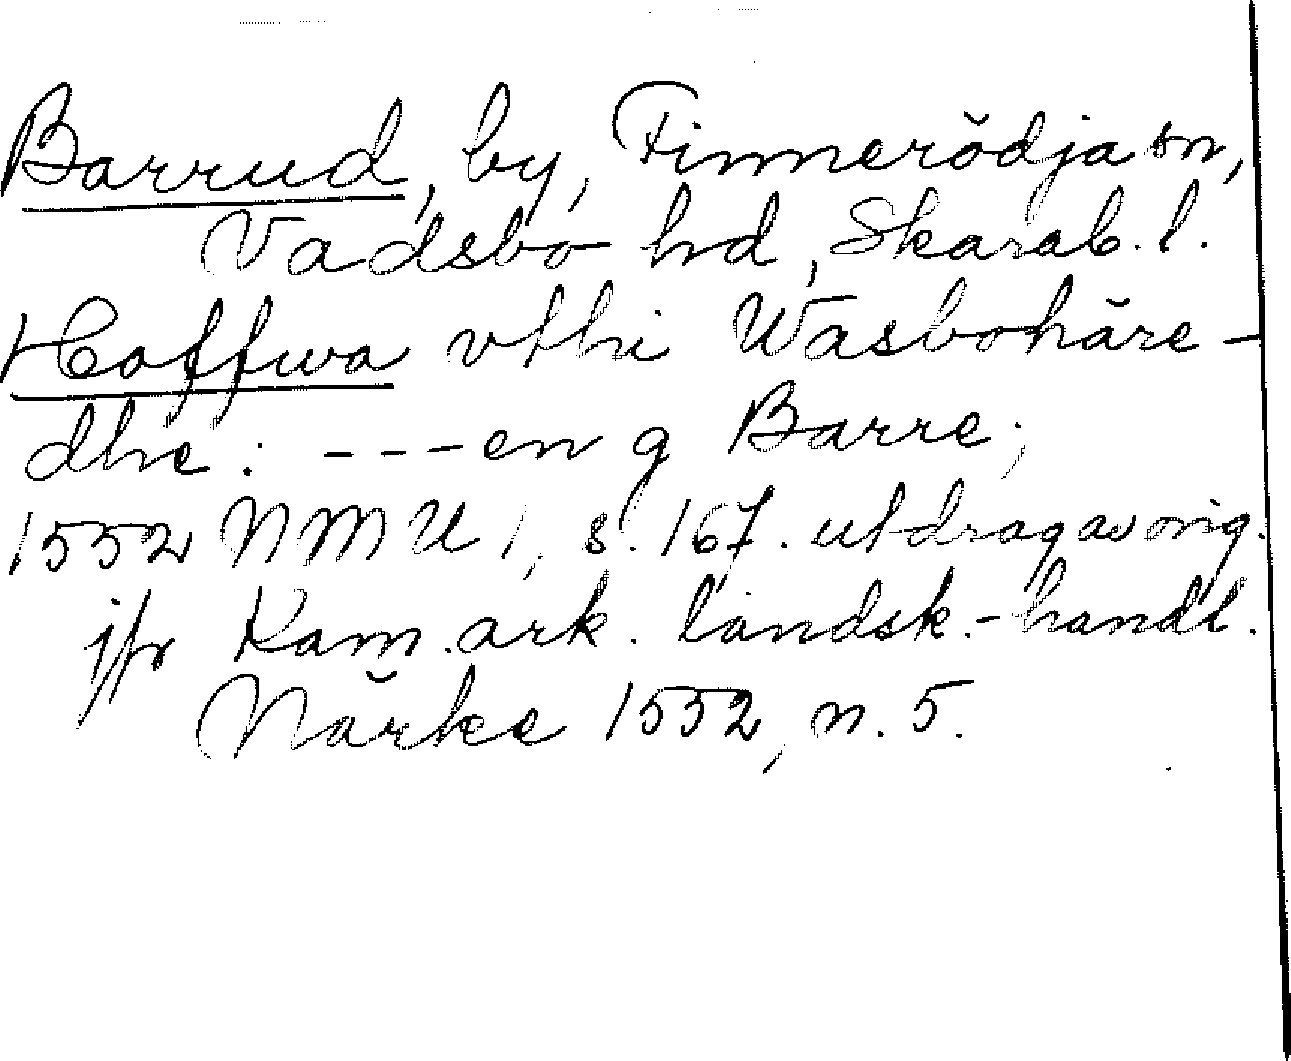 Barrud, by, Finnerödja sn,
Vadsbo hd, Skarab. l.
Hoffwa vthi Wasbohäre-
dhe: --- en g Barre;
1552 NMU 1, s. 167. utdrag av orig.
jfr Kam. ark. landsk.-handl.
Närke 1552, n. 5.